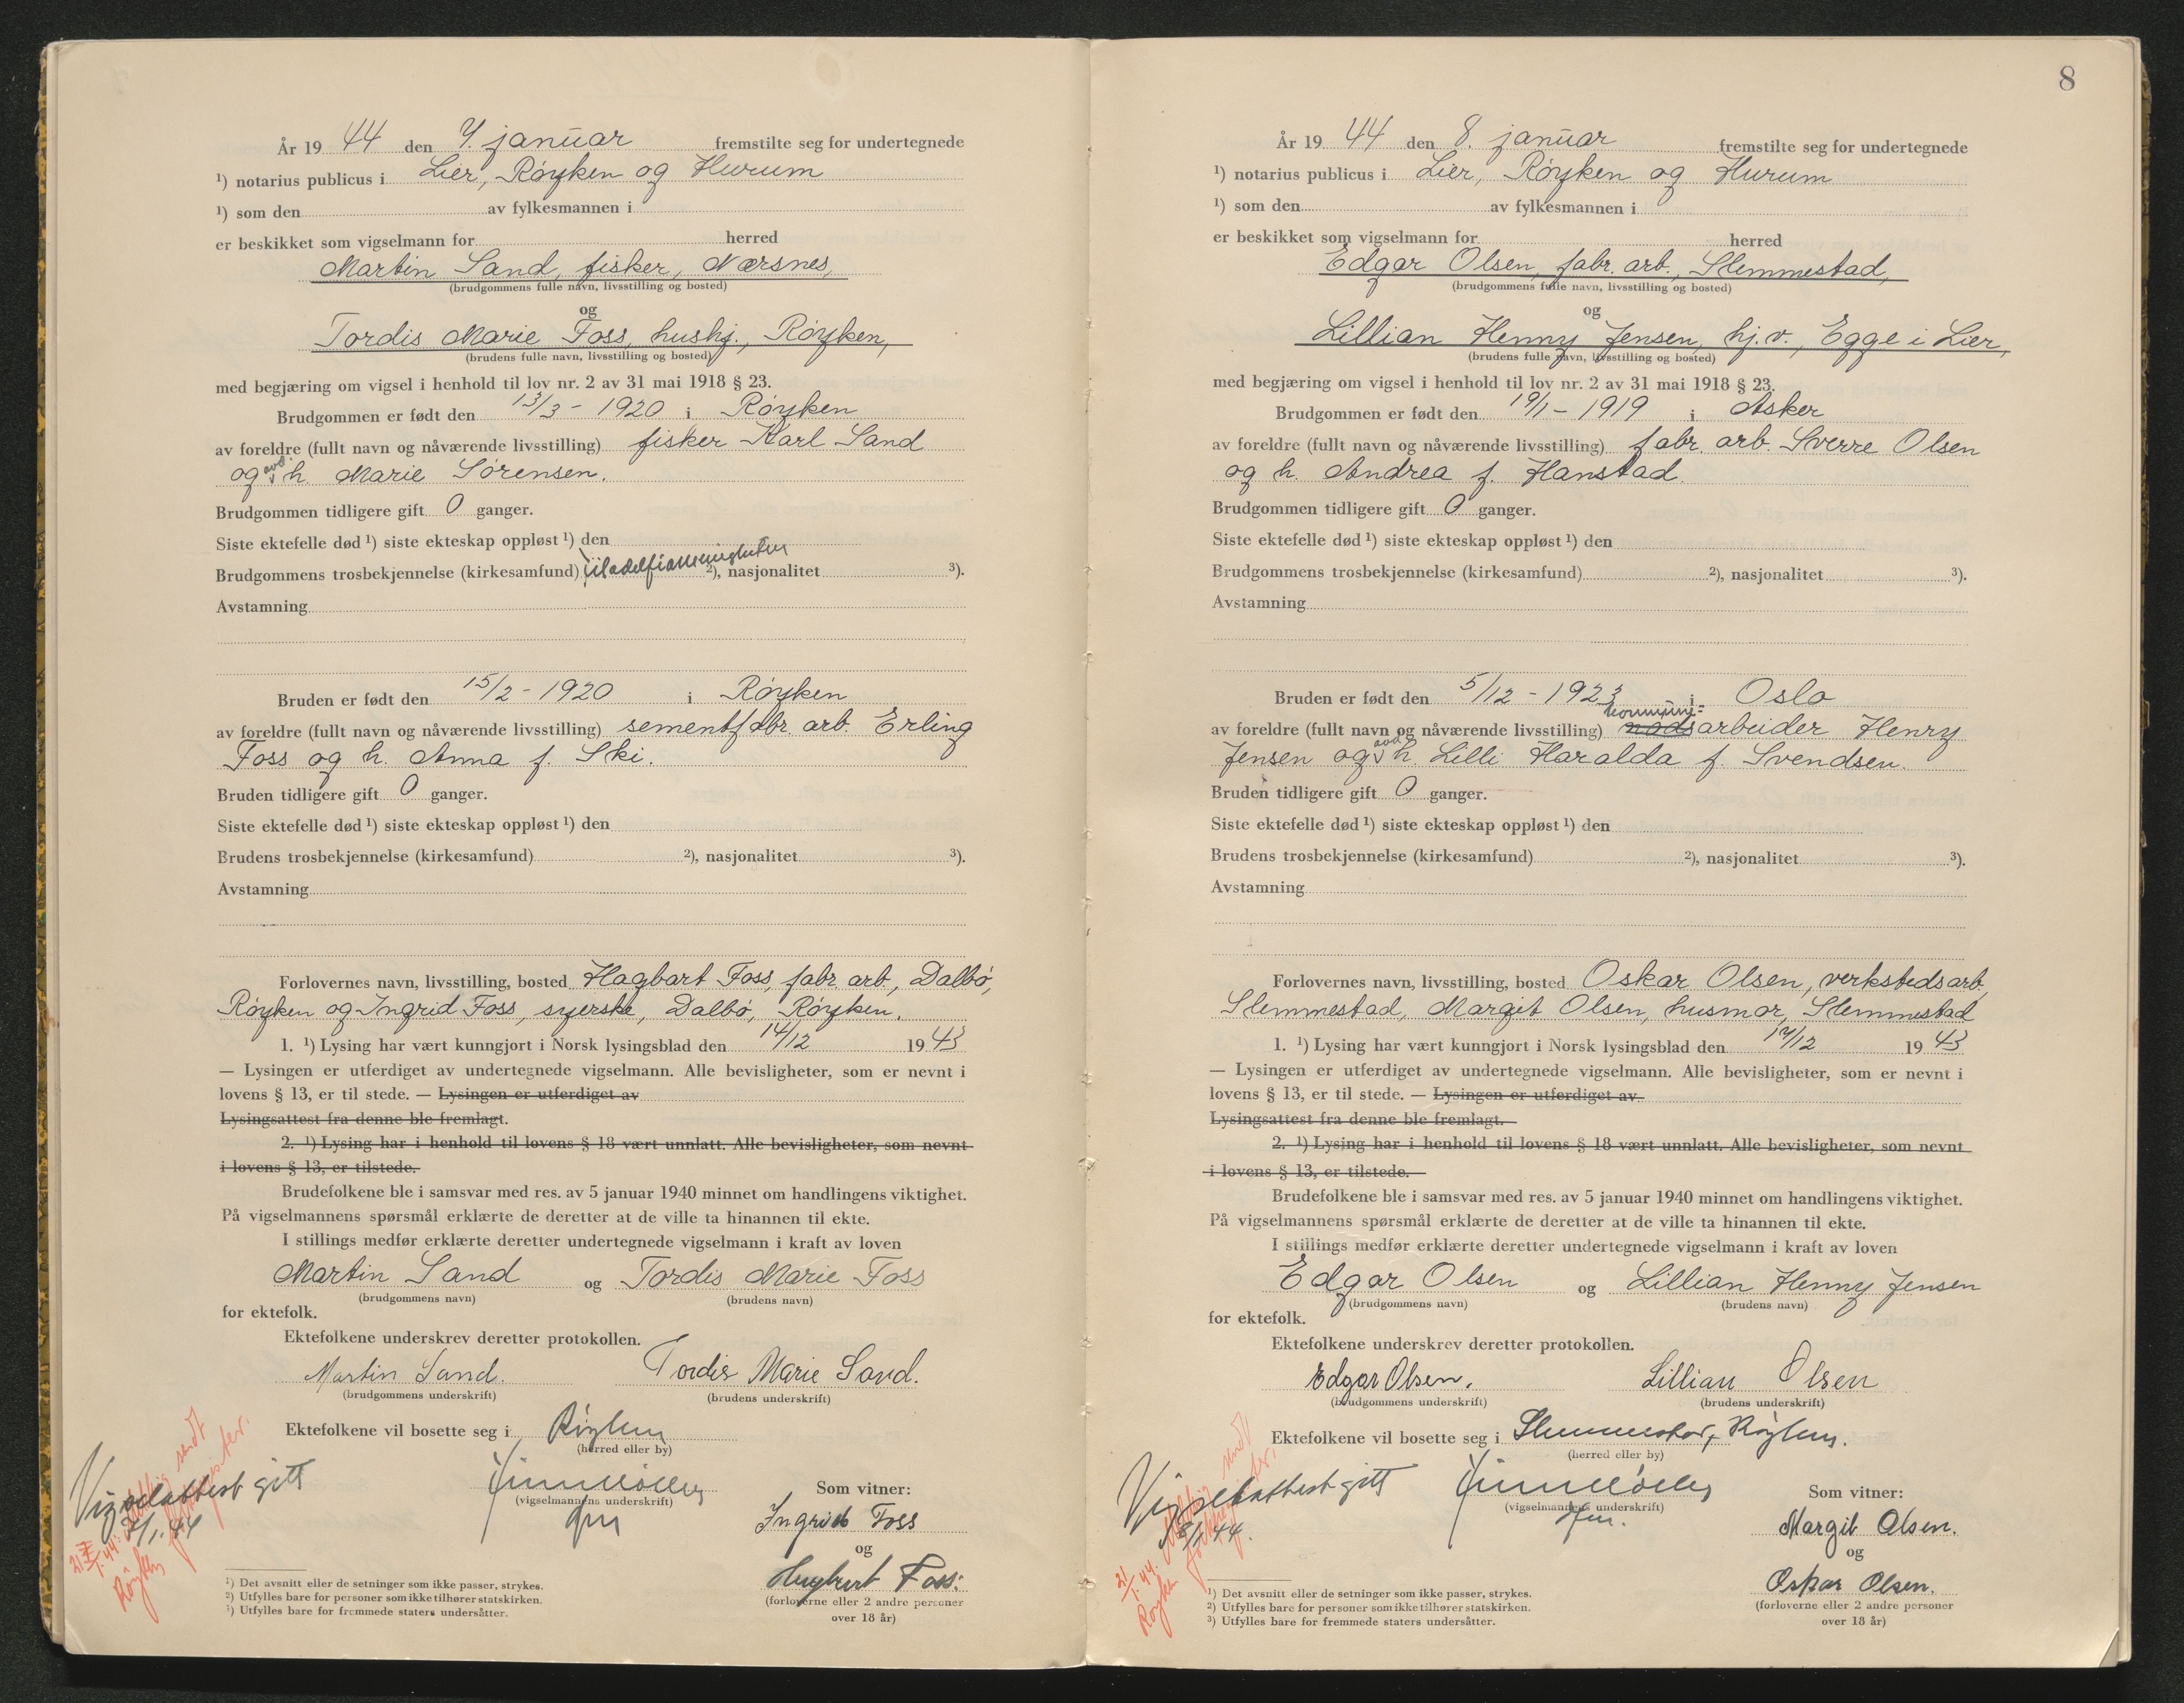 År 19 44 den 7. januar fremstilte seg for undertegnede
¹) notarius publicus i Lier, Røyken og Hurum
¹) som den av fylkesmannen i
er beskikket som vigselmann for herred
Martin Sand, fisker, Nærsnes,
(brudgommens fulle navn, livsstilling og bosted)
og
Tordis Marie Foss, hushj., Røyken,
(brudens fulle navn, livsstilling og bosted)
med begjæring om vigsel i henhold til lov nr. 2 av 31 mai 1918 § 23.
Brudgommen er født den 13/3 - 1920 i Røyken
av foreldre (fullt navn og nåværende livsstilling) fisker Karl Sand
og avd. h. Marie Sørensen.
Brudgommen tidligere gift 0 ganger.
Siste ektefelle død ¹) siste ekteskap oppløst ¹) den
Brudgommens trosbekjennelse (kirkesamfund) ²), nasjonalitet ³).
Avstamning
Bruden er født den 15/2 - 1920 i Røyken
av foreldre (fullt navn og nåværende livsstilling) sementfabr. arb. Erling
Foss og h. Anna f. Ski.
Bruden tidligere gift 0 ganger.
Siste ektefelle død ¹) siste ekteskap oppløst ¹) den
Brudens trosbekjennelse (kirkesamfund) ²), nasjonalitet ³).
Avstamning
Forlovernes navn, livsstilling, bosted Hagbart Foss, fabr. arb., Dalbø,
Røyken og Ingrid Foss, syerske, Dalbø, Røyken.
1. ¹) Lysing har vært kunngjort i Norsk lysingsblad den 14/12 19 43
— Lysingen er utferdiget av undertegnede vigselmann. Alle bevisligheter, som er nevnt i
lovens § 13, er til stede. — Lysingen er utferdiget av
Lysingsattest fra denne ble fremlagt.
2. ¹) Lysing har i henhold til lovens § 18 vært unnlatt. Alle bevisligheter, som nevnt
i lovens § 13, er tilstede.
Brudefolkene ble i samsvar med res. av 5 januar 1940 minnet om handlingens viktighet.
På vigselmannens spørsmål erklærte de deretter at de ville ta hinannen til ekte.
I stillings medfør erklærte deretter undertegnede vigselmann i kraft av loven
Martin Sand og Tordis Marie Foss
(brudgommens navn) (brudens navn)
for ektefolk.
Ektefolkene underskrev deretter protokollen.
Martin Sand. Tordis Marie Sand.
(brudgommens underskrift) (brudens underskrift)
Ektefolkene vil bosette seg i Røyken
(herred eller by)
Vigselattest gitt
7/1.44
(vigselmannens underskrift)
Som vitner:
Ingrid Foss
og
Hagbart Foss.
(forloverne eller 2 andre personer
over 18 år)
¹) Det avsnitt eller de setninger som ikke passer, strykes.
²) Utfylles bare for personer som ikke tilhører statskirken.
³) Utfylles bare for fremmede staters undersåtter.
8
År 19 44 den 8. januar fremstilte seg for undertegnede
¹) notarius publicus i Lier, Røyken og Hurum
¹) som den av fylkesmannen i
er beskikket som vigselmann for herred
Edgar Olsen, fabr. arb., Slemmestad,
(brudgommens fulle navn, livsstilling og bosted)
og
Lillian Henny Jensen, hj. v., Egge i Lier,
(brudens fulle navn, livsstilling og bosted)
med begjæring om vigsel i henhold til lov nr. 2 av 31 mai 1918 § 23.
Brudgommen er født den 19/1 - 1919 i Asker
av foreldre (fullt navn og nåværende livsstilling) fabr. arb. Sverre Olsen
og h. Andrea f. Hanstad.
Brudgommen tidligere gift 0 ganger.
Siste ektefelle død ¹) siste ekteskap oppløst ¹) den
Brudgommens trosbekjennelse (kirkesamfund) ²), nasjonalitet ³).
Avstamning
Bruden er født den 5/12 - 1923 i Oslo
av foreldre (fullt navn og nåværende livsstilling) arbeider Henry
Jensen og avd. h. Lilli Haralda f. Svendsen.
Bruden tidligere gift 0 ganger.
Siste ektefelle død ¹) siste ekteskap oppløst ¹) den
Brudens trosbekjennelse (kirkesamfund) ²), nasjonalitet ³).
Avstamning
Forlovernes navn, livsstilling, bosted Oskar Olsen, verkstedsarb.,
Slemmestad, Margit Olsen, husmor, Slemmestad
1. ¹) Lysing har vært kunngjort i Norsk lysingsblad den 14/12 19 43
— Lysingen er utferdiget av undertegnede vigselmann. Alle bevisligheter, som er nevnt i
lovens § 13, er til stede. — Lysingen er utferdiget av
Lysingsattest fra denne ble fremlagt.
2. ¹) Lysing har i henhold til lovens § 18 vært unnlatt. Alle bevisligheter, som nevnt
i lovens § 13, er tilstede.
Brudefolkene ble i samsvar med res. av 5 januar 1940 minnet om handlingens viktighet.
På vigselmannens spørsmål erklærte de deretter at de ville ta hinannen til ekte.
I stillings medfør erklærte deretter undertegnede vigselmann i kraft av loven
Edgar Olsen og Lillian Henny Jensen
(brudgommens navn) (brudens navn)
for ektefolk.
Ektefolkene underskrev deretter protokollen.
Edgar Olsen. Lillian Olsen
(brudgommens underskrift) (brudens underskrift)
Ektefolkene vil bosette seg i Slemmestad, Røyken.
(herred eller by)
Vigselattest gitt
8/1.44.
(vigselmannens underskrift)
Som vitner:
Margit Olsen.
og
Oskar Olsen.
(forloverne eller 2 andre personer
over 18 år)
¹) Det avsnitt eller de setninger som ikke passer, strykes.
²) Utfylles bare for personer som ikke tilhører statskirken.
³) Utfylles bare for fremmede staters undersåtter.